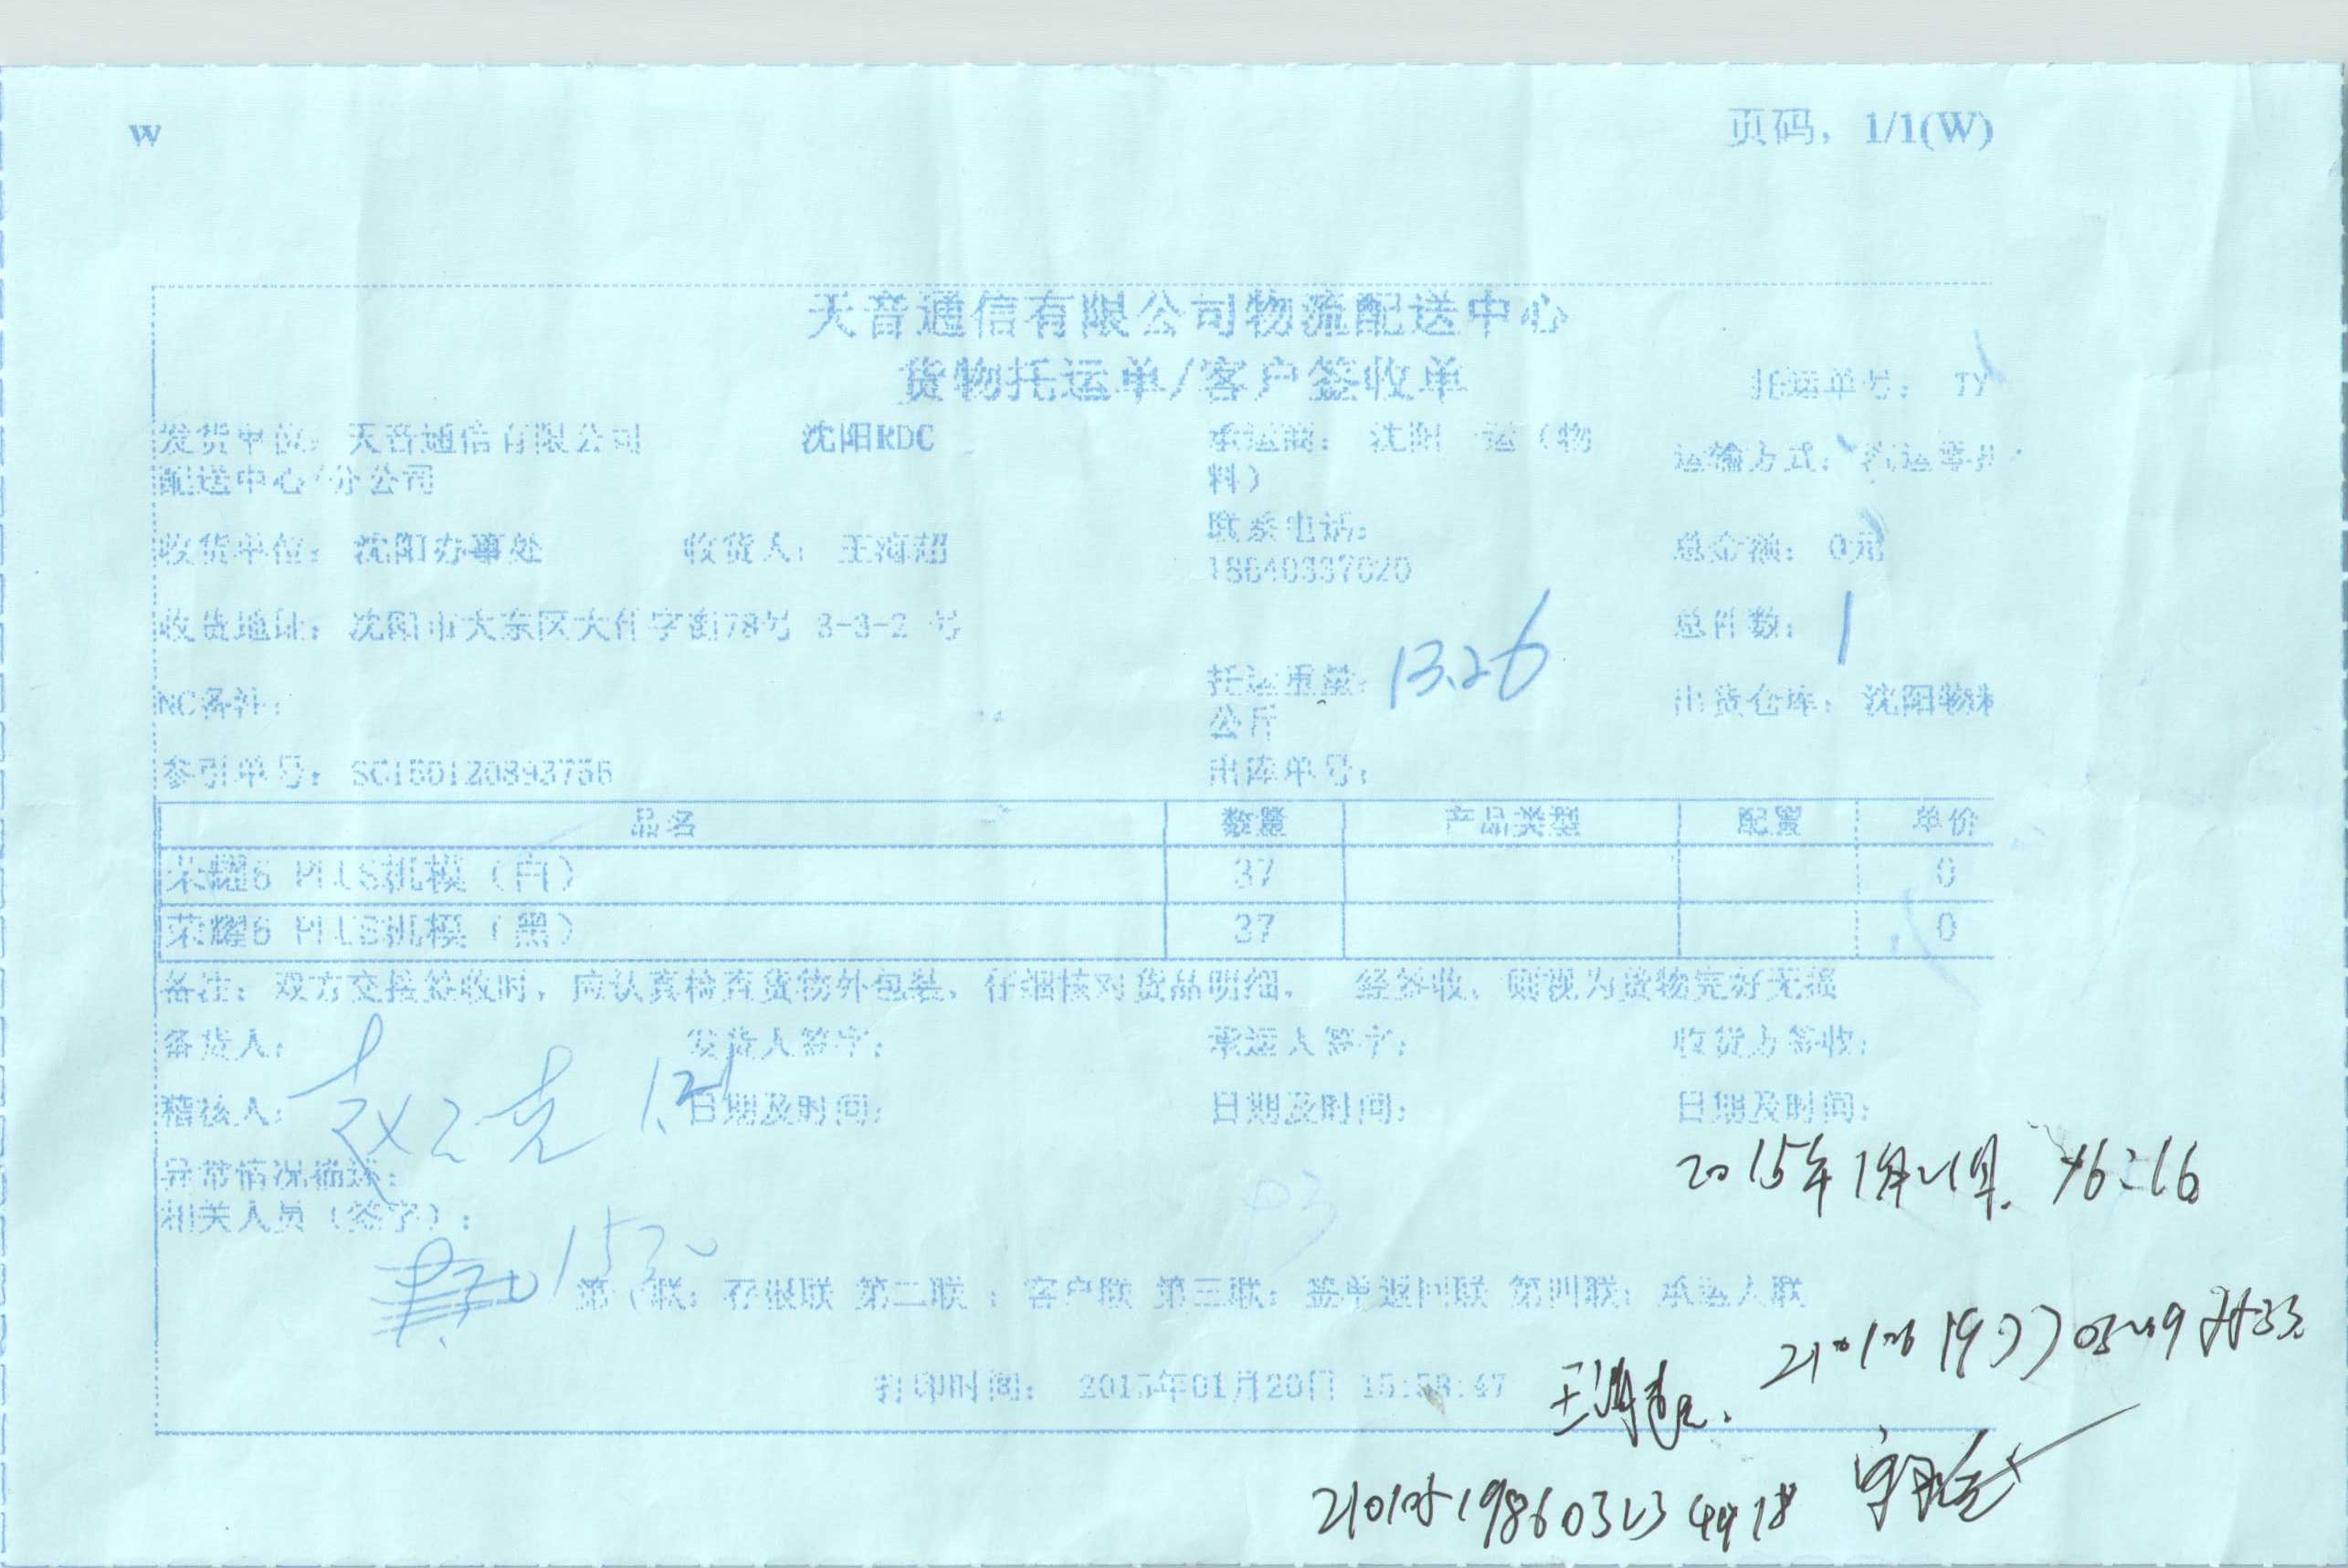 W
页码, 1/1(W)
天音通信有限公司物流配送中心
货物托运单/客户签收单
托运单号: TY
发货单位: 天音通信有限公司 沈阳RDC
配送中心/分公司
承运商: 沈阳 运（物
料）
运输方式: 汽运零
收货单位: 沈阳办事处 收货人: 王海超
联系电话:
18640337020
总金额: 0元
收货地址: 沈阳市大东区大什字街78号 3-3-2 号
总件数: 1
NC备注:
托运重量: 13.26
公斤
出货仓库: 沈阳物
参引单号: SC150120893756
出库单号:
品名 数量 产品类型 配置 单价
荣耀6 PLUS机模（白） 37 0
荣耀6 PLUS机模（黑） 37 0
备注: 双方交接签收时, 应认真检查货物外包装, 仔细核对货品明细, 经签收, 则视为货物完好无损
备货人: 发货人签字: 承运人签字: 收货方签收:
稽核人: 1.21 日期及时间: 日期及时间: 日期及时间:
异常情况描述:
2015年1月21日. 16:16
相关人员（签字）:
1530
第 联: 存根联 第二联 : 客户联 第三联: 签单返回联 第四联: 承运人联
打印时间: 2015年01月20日 15:58:47
王海超.